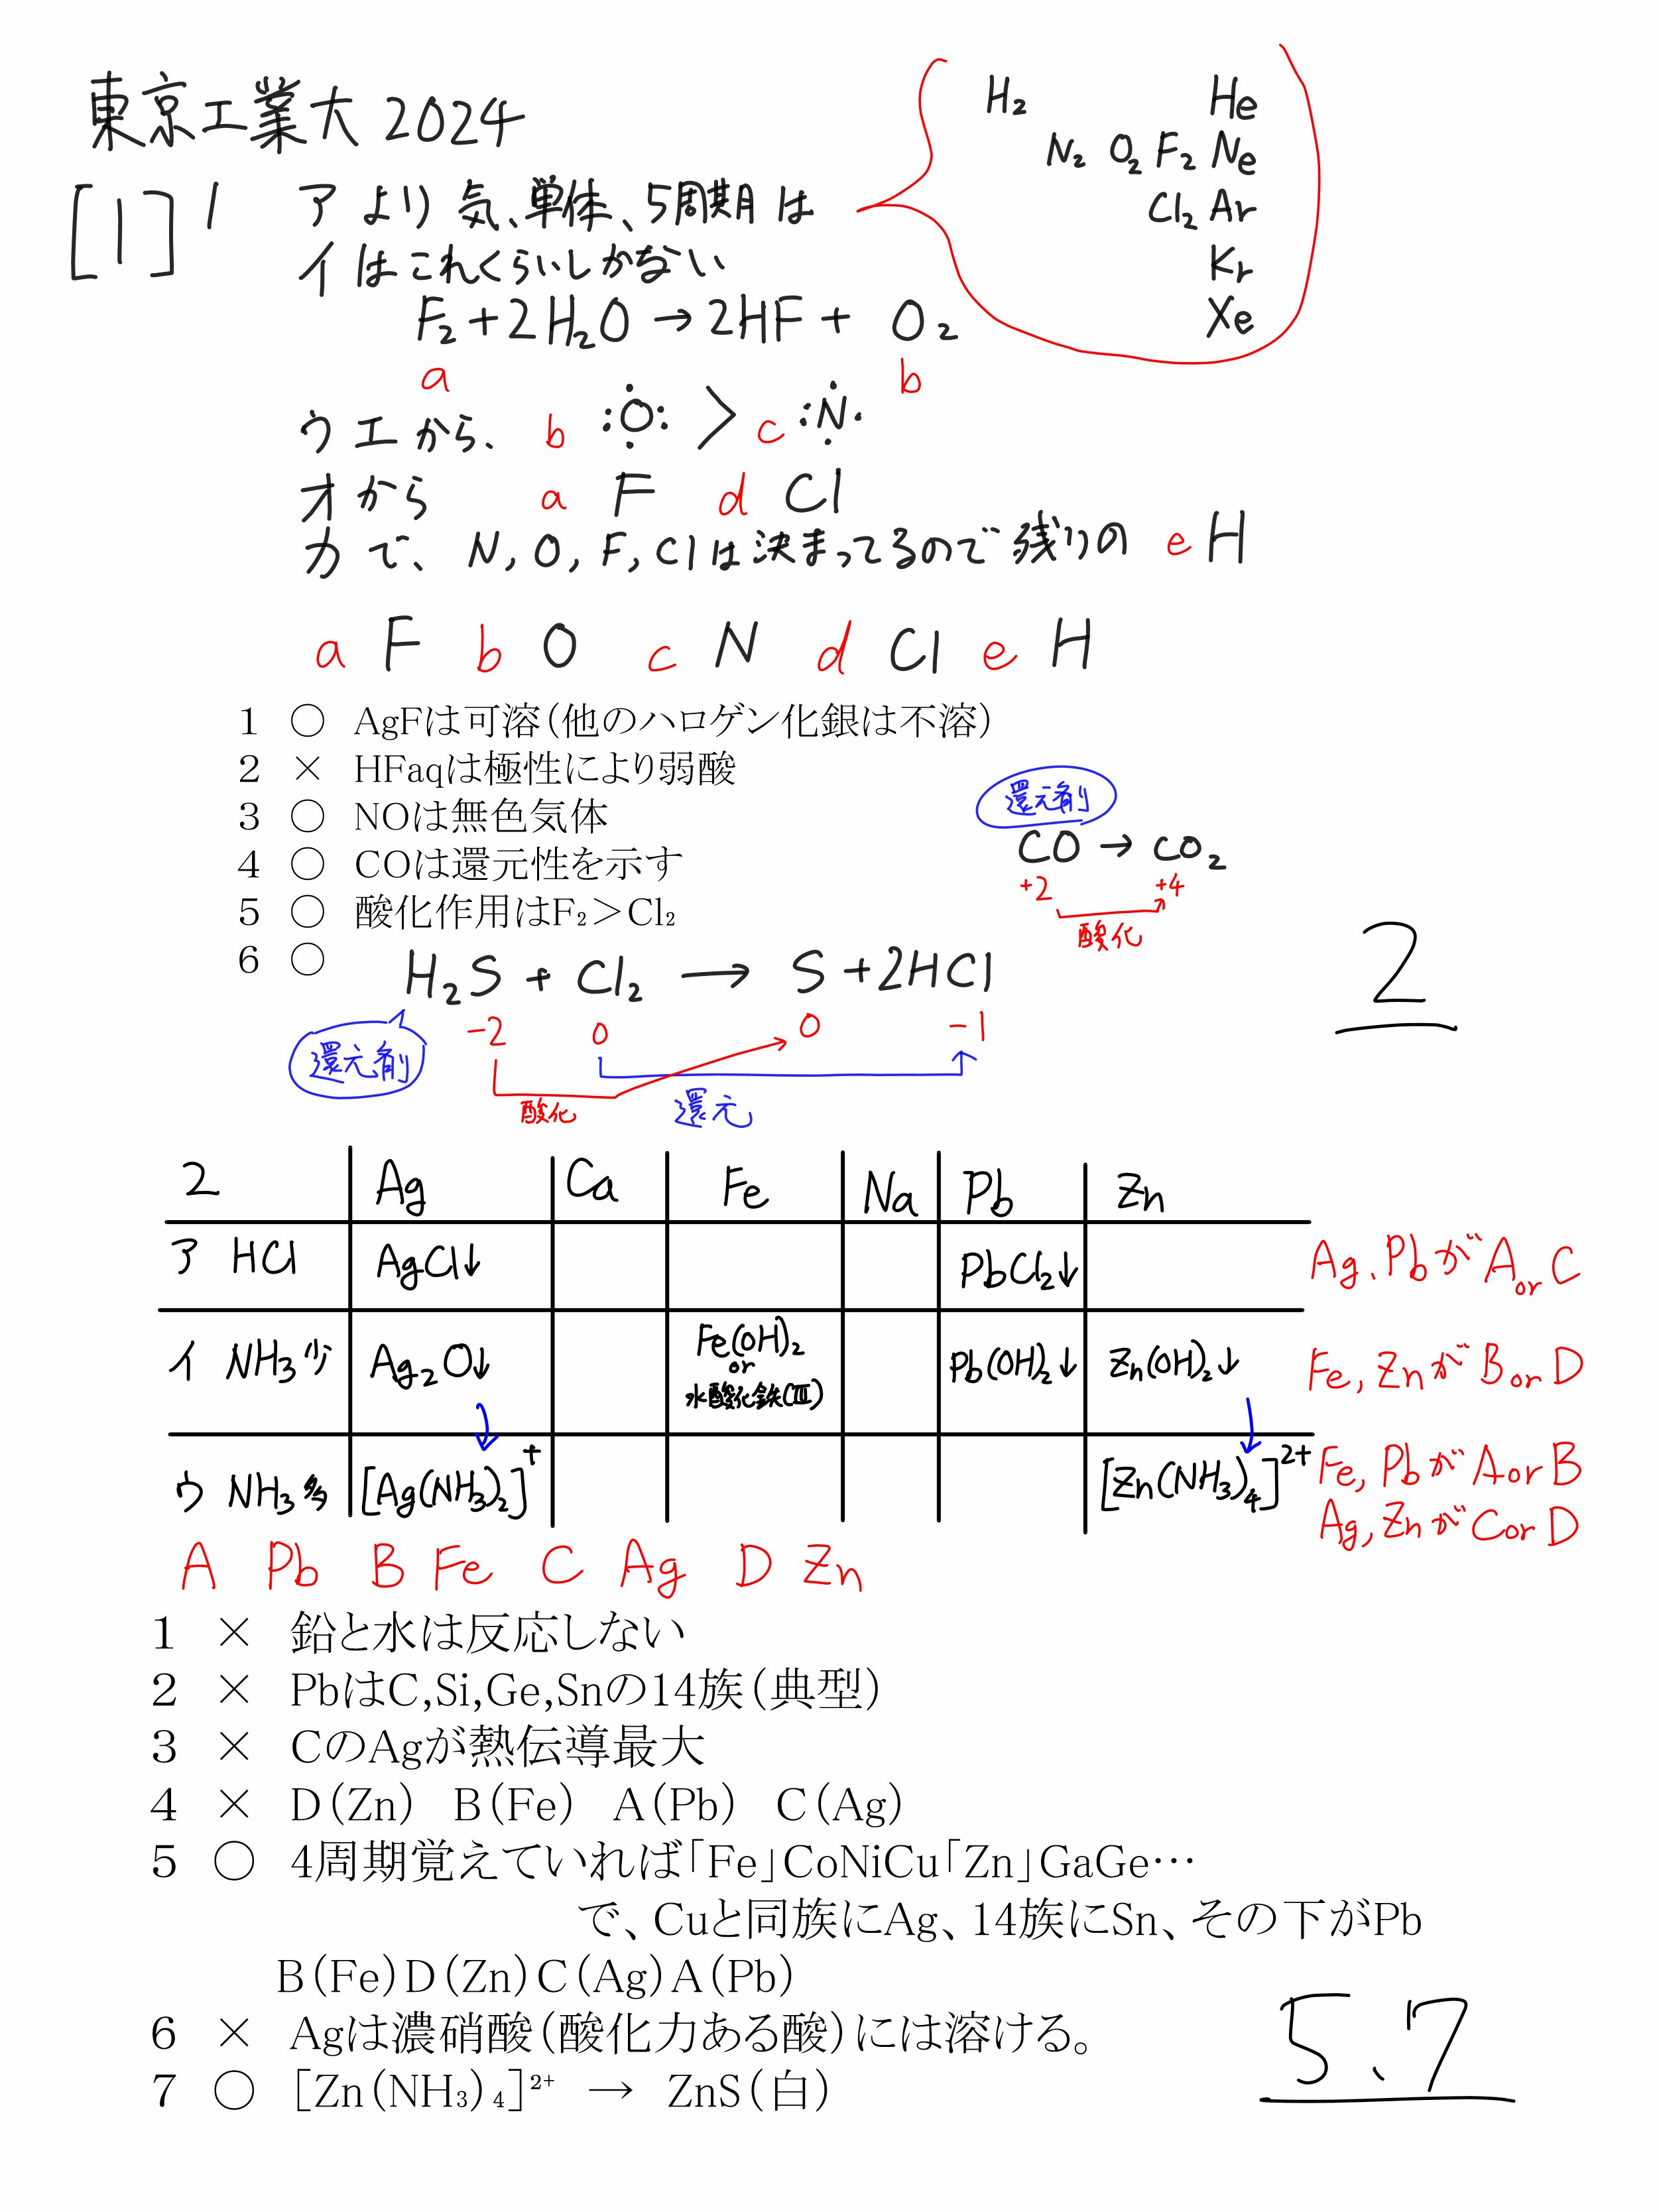 東京工業大 2024
[1] 1 アより気、単体、5周期は
H₂ He
N₂ O₂ F₂ Ne
Cl₂ Ar
Kr
Xe
イはこれくらいしかない
F₂+2H₂O→2HF+ O₂
a b
ウエから、 b :O: > c :N・
オから a F d Cl
カで、N, O, F, Clは決まってるので残りの e H
a F b O c N d Cl e H
1 ○ AgFは可溶(他のハロゲン化銀は不溶)
2 × HFaqは極性により弱酸
3 ○ NOは無色気体
4 ○ COは還元性を示す
還元剤
CO→CO₂
+2 +4
酸化
5 ○ 酸化作用はF₂>Cl₂
6 ○ H₂S + Cl₂ → S+2HCl
-2 0 0 -1
還元剤
酸化 還元
2
2 Ag Ca Fe Na Pb Zn
ア HCl AgCl↓ PbCl₂↓ Ag、PbがA or C
イ NH₃少 Ag₂O↓ Fe(OH)₂ or 水酸化鉄(Ⅲ) Pb(OH)₂↓ Zn(OH)₂↓ Fe, ZnがB or D
ウ NH₃多 [Ag(NH₃)₂]⁺ [Zn(NH₃)₄]²⁺ Fe, PbがA or B
Ag, ZnがC or D
A Pb B Fe C Ag D Zn
1 × 鉛と水は反応しない
2 × PbはC,Si,Ge,Snの14族(典型)
3 × CのAgが熱伝導最大
4 × D(Zn) B(Fe) A(Pb) C(Ag)
5 ○ 4周期覚えていれば「Fe」CoNiCu「Zn」GaGe…
で、Cuと同族にAg、14族にSn、その下がPb
B(Fe)D(Zn)C(Ag)A(Pb)
6 × Agは濃硝酸(酸化力ある酸)には溶ける。
7 ○ [Zn(NH₃)₄]²⁺ → ZnS(白)
5.7